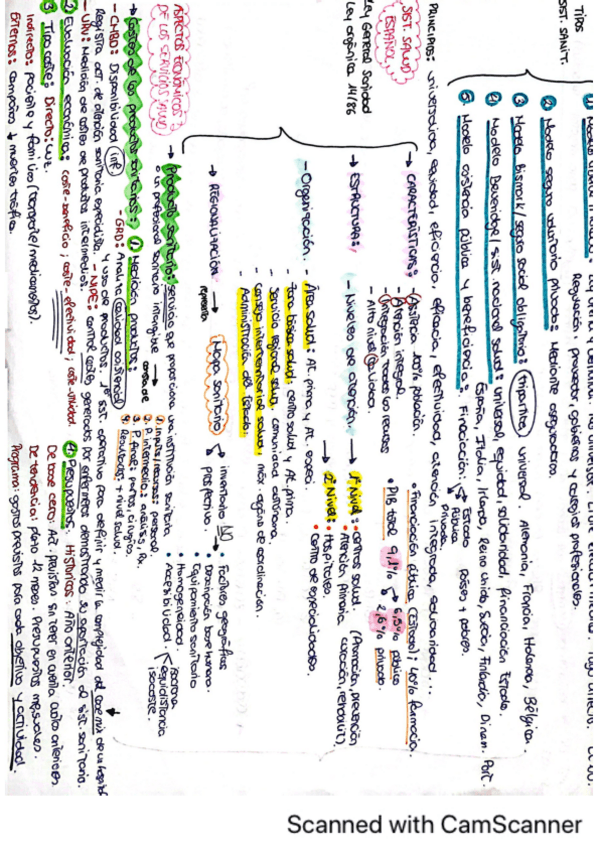 TIPOS
SIST. SANIT.
Regulación, proveedor, gobiernos y colegios profesionales.
2 Modelo seguro voluntario privado: Mediante aseguradoras
3 Modelo Bismark / seguro social obligatorio: tripartita, universal. Alemania, Francia, Holanda, Bélgica.
4 Modelo Beveridge / sist. nacional salud: universal, equidad, solidaridad, financiación Estado.
España, Italia, Irlanda, Reino Unido, Suecia, Finlandia, Dinam. Port.
5 Modelo asistencia pública y beneficiencia: Financiación: Estado países + pobres.
Pública
Privada.
PRINCIPIOS: universalidad, equidad, eficiencia, eficacia, efectividad, atención integrada, salubridad...
SIST. SALUD
ESPAÑOL
Ley General Sanidad
Ley orgánica 14/86
→ CARACTERÍSTICAS:
- Asistencia 100% población.
- Atención integral.
- Integración todos los recursos
- Alto nivel calidad.
• Financiación pública (Estado): 40% farmacia.
• PIB total 9,1%
6,5% público
2,6% privado.
→ ESTRUCTURA:
- Niveles de atención.
1º Nivel: • Centros salud. (Promoción, prevención
• Atención Primaria curación, rehabilit.)
2º Nivel: • Hospitales.
• Centro de especialidades.
- Organización.
- Área salud: At. prima y At. especi.
- Zona básica salud: centro salud y At. prima.
- Servicio regional salud: comunidad autónoma.
- Consejo interterritorial salud: máx. órgano de coordinación.
- Administración del Estado.
→ REGIONALIZACIÓN
representa
→ Mapa sanitario
inventario NO
prospectivo
• Factores geográficos
• Descripción base humana.
• Equipamiento sanitario
• Homogeneidad.
• Accesibilidad
isocrona
equidistancia
isocoste
ASPECTOS ECONÓMICOS
DE LOS SERVICIOS SALUD
→ Producto sanitario: servicio que proporciona una institución sanitaria
o un profesional sanitario intangible
consta de
1. Inputs: recursos, personal
2. P. intermedio: análisis, Rx.
3. P. final: partos, cirugías.
4. Resultados: + nivel salud.
→ Costes de los productos sanitarios:
1 Medición productos:
- CMBD: Disponibilidad inf.
- GRD: Analiza calidad asistencial
Registra act. de atención sanitaria especialista y uso de productos. 1º sist. operativo para definir y medir la complejidad del casemix de un hospital
- URV: Medición de costes de productos intermedios.
- NIPE: control costes generados por enfermeros demostrando su aportación al sist. sanitario.
2 Evaluación económica: coste-beneficio; coste-efectividad, coste-utilidad.
3 Tipo costes: Directo: luz.
Indirecto: paciente y familiar (transporte/medicamentos).
Externos: campañas ↓ muertes tráfico.
4 Presupuestos: Históricos: Año anterior.
De base cero: Act. previstas sin tener en cuenta costes anteriores
De tendencia: plazo 12 meses. Presupuestos mensuales.
Programa: gastos previstos para cada objetivo y actividad.
Scanned with CamScanner